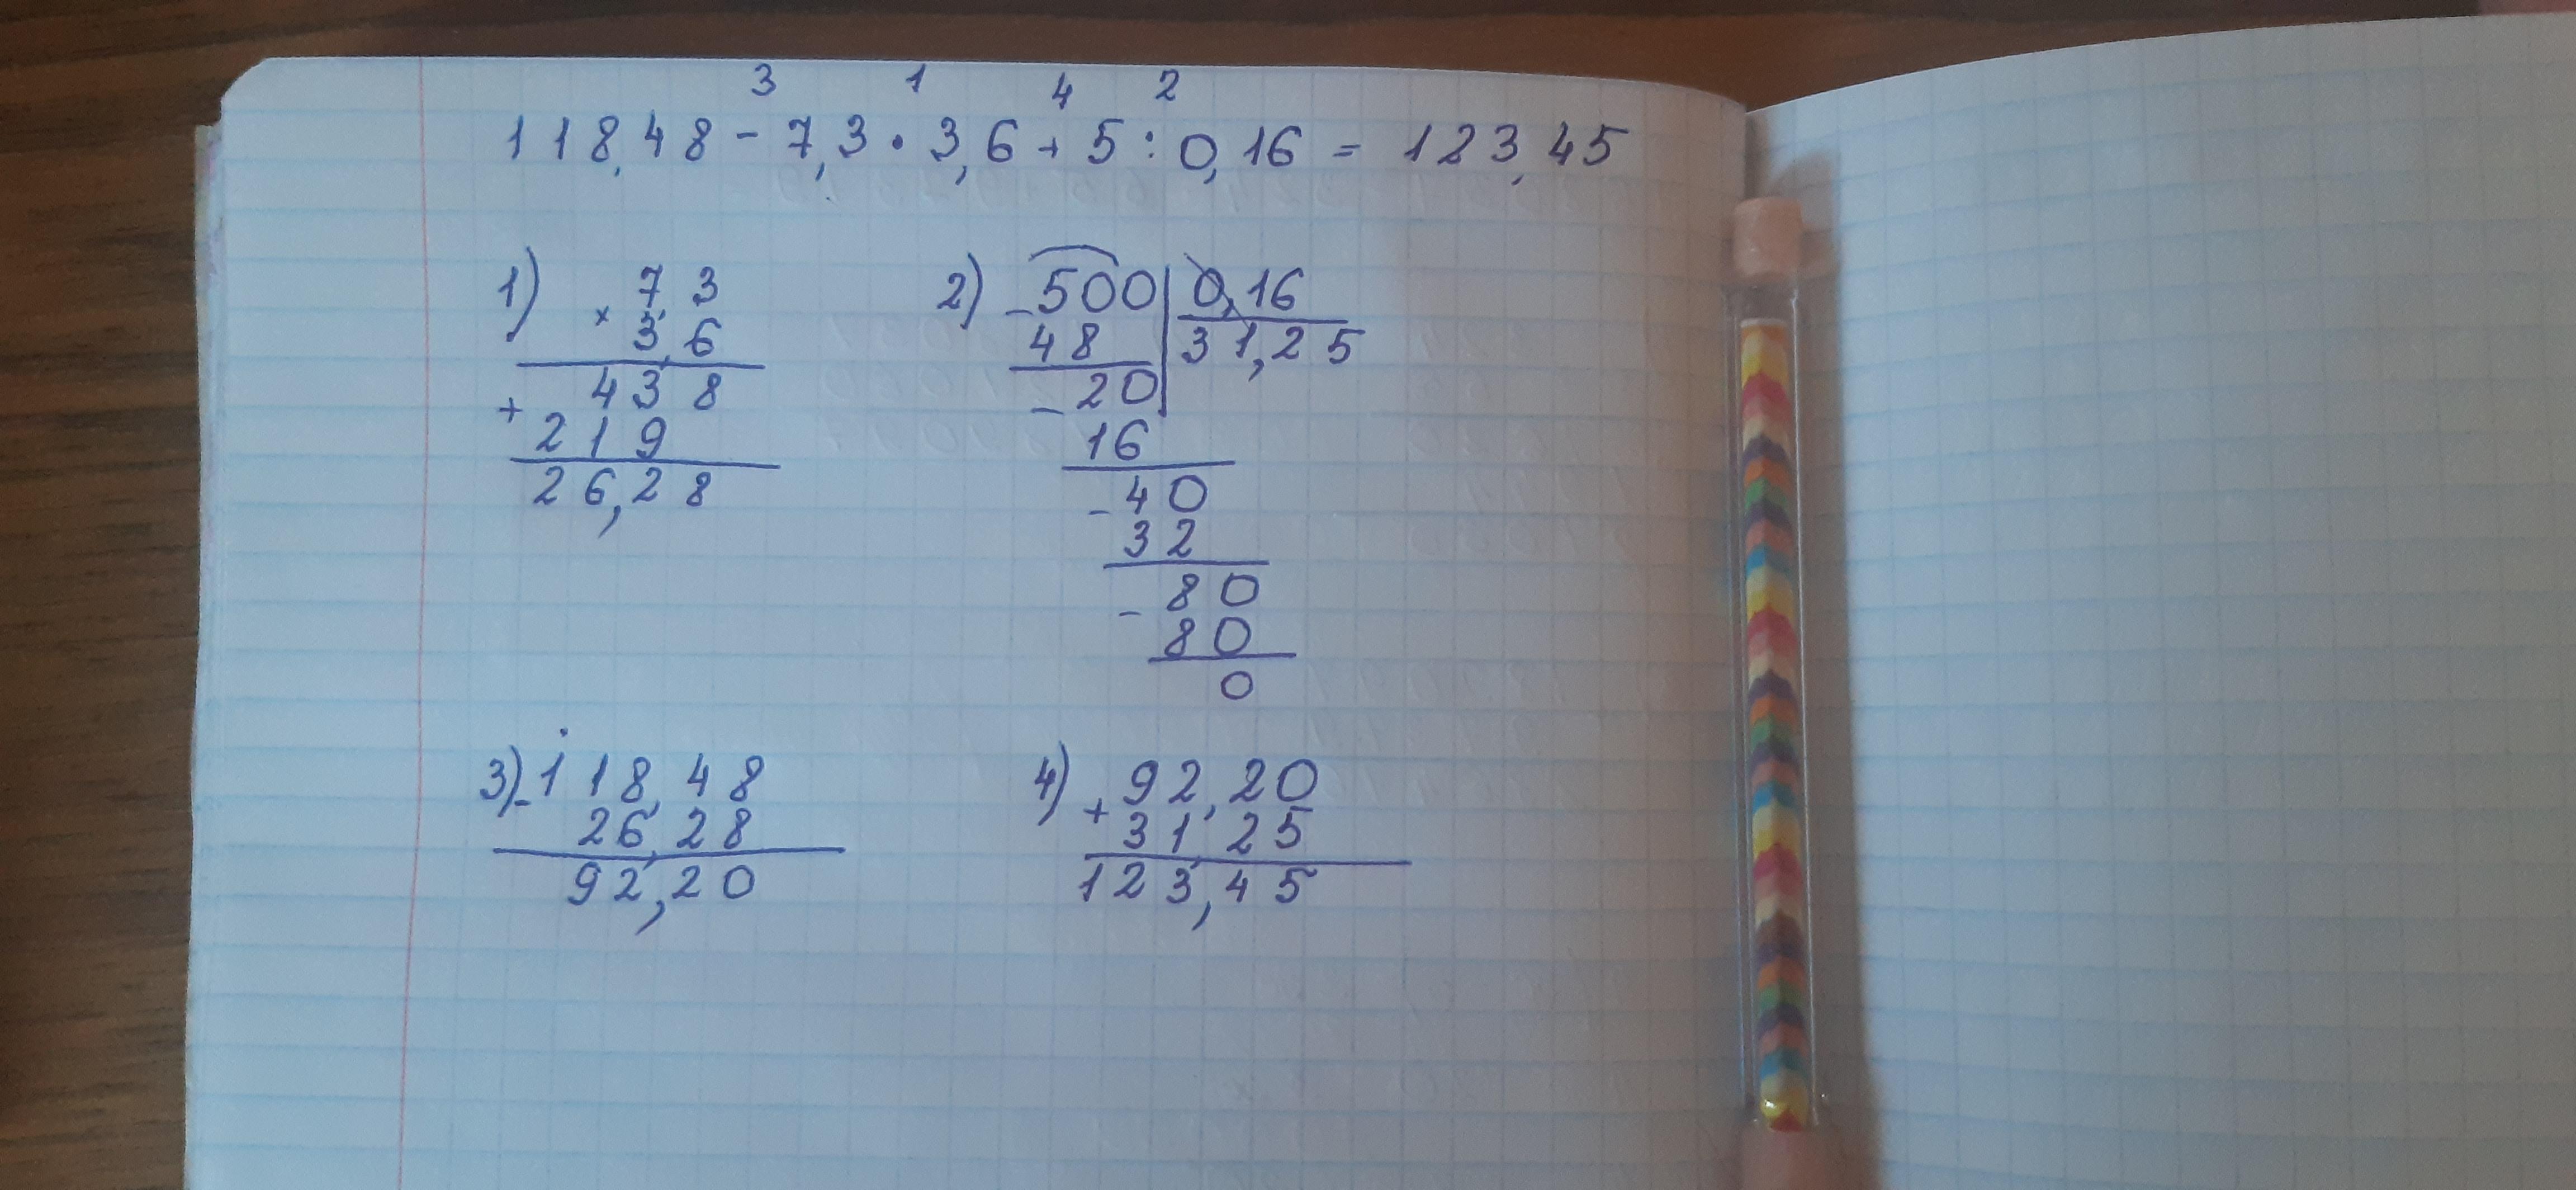 3 1 4 2
118,48 - 7,3 · 3,6 + 5 : 0,16 = 123,45
1) × 7,3
3,6
+ 438
219
26,28
2) - 500 | 0,16
48 | 31,25
- 20
16
- 40
32
- 80
80
0
3) - 118,48
26,28
92,20
4) + 92,20
31,25
123,45